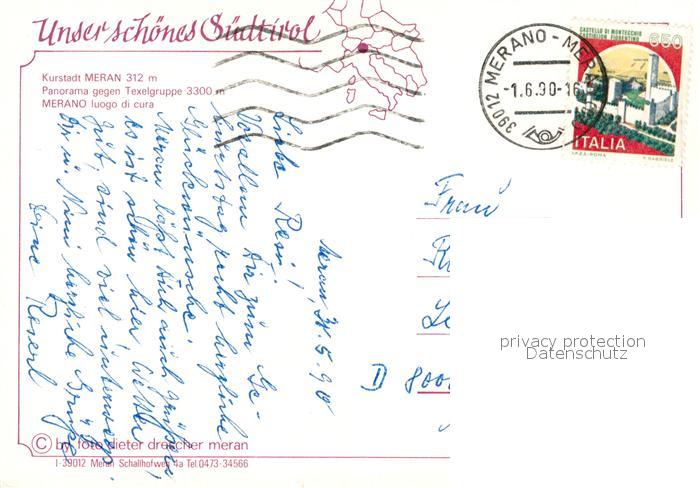 Unser schönes Südtirol
Kurstadt MERAN 312 m
Panorama gegen Texelgruppe 3300 m
MERANO luogo di cura
39012 MERANO - MER
-1.6.90-16
650
CASTELLO DI MONTECCHIO
CASTIGLION FIORENTINO
ITALIA
I.P.Z.S.-ROMA
Meran, 31.5.90
Liebe Resi!
Vorallem Dir zum Ge-
burtstag recht herzliche
Glückwünsche!
Meran läßt Dich auch grüßen,
es ist schön hier, Wetter
gut, sind viel unterwegs.
Dir u. Nini herzliche Grüße
Deine Roserl
Frau
D 800
privacy protection
Datenschutz
© by foto dieter drescher meran
I-39012 Meran Schallhofweg 4a Tel.0473-34566